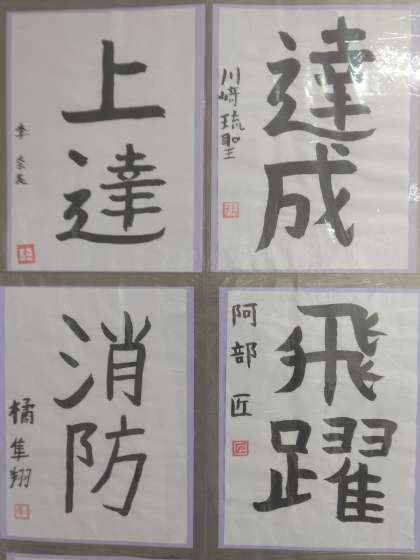 達成
川﨑琉聖
上達
李
飛躍
阿部 匠
消防
橘隼翔